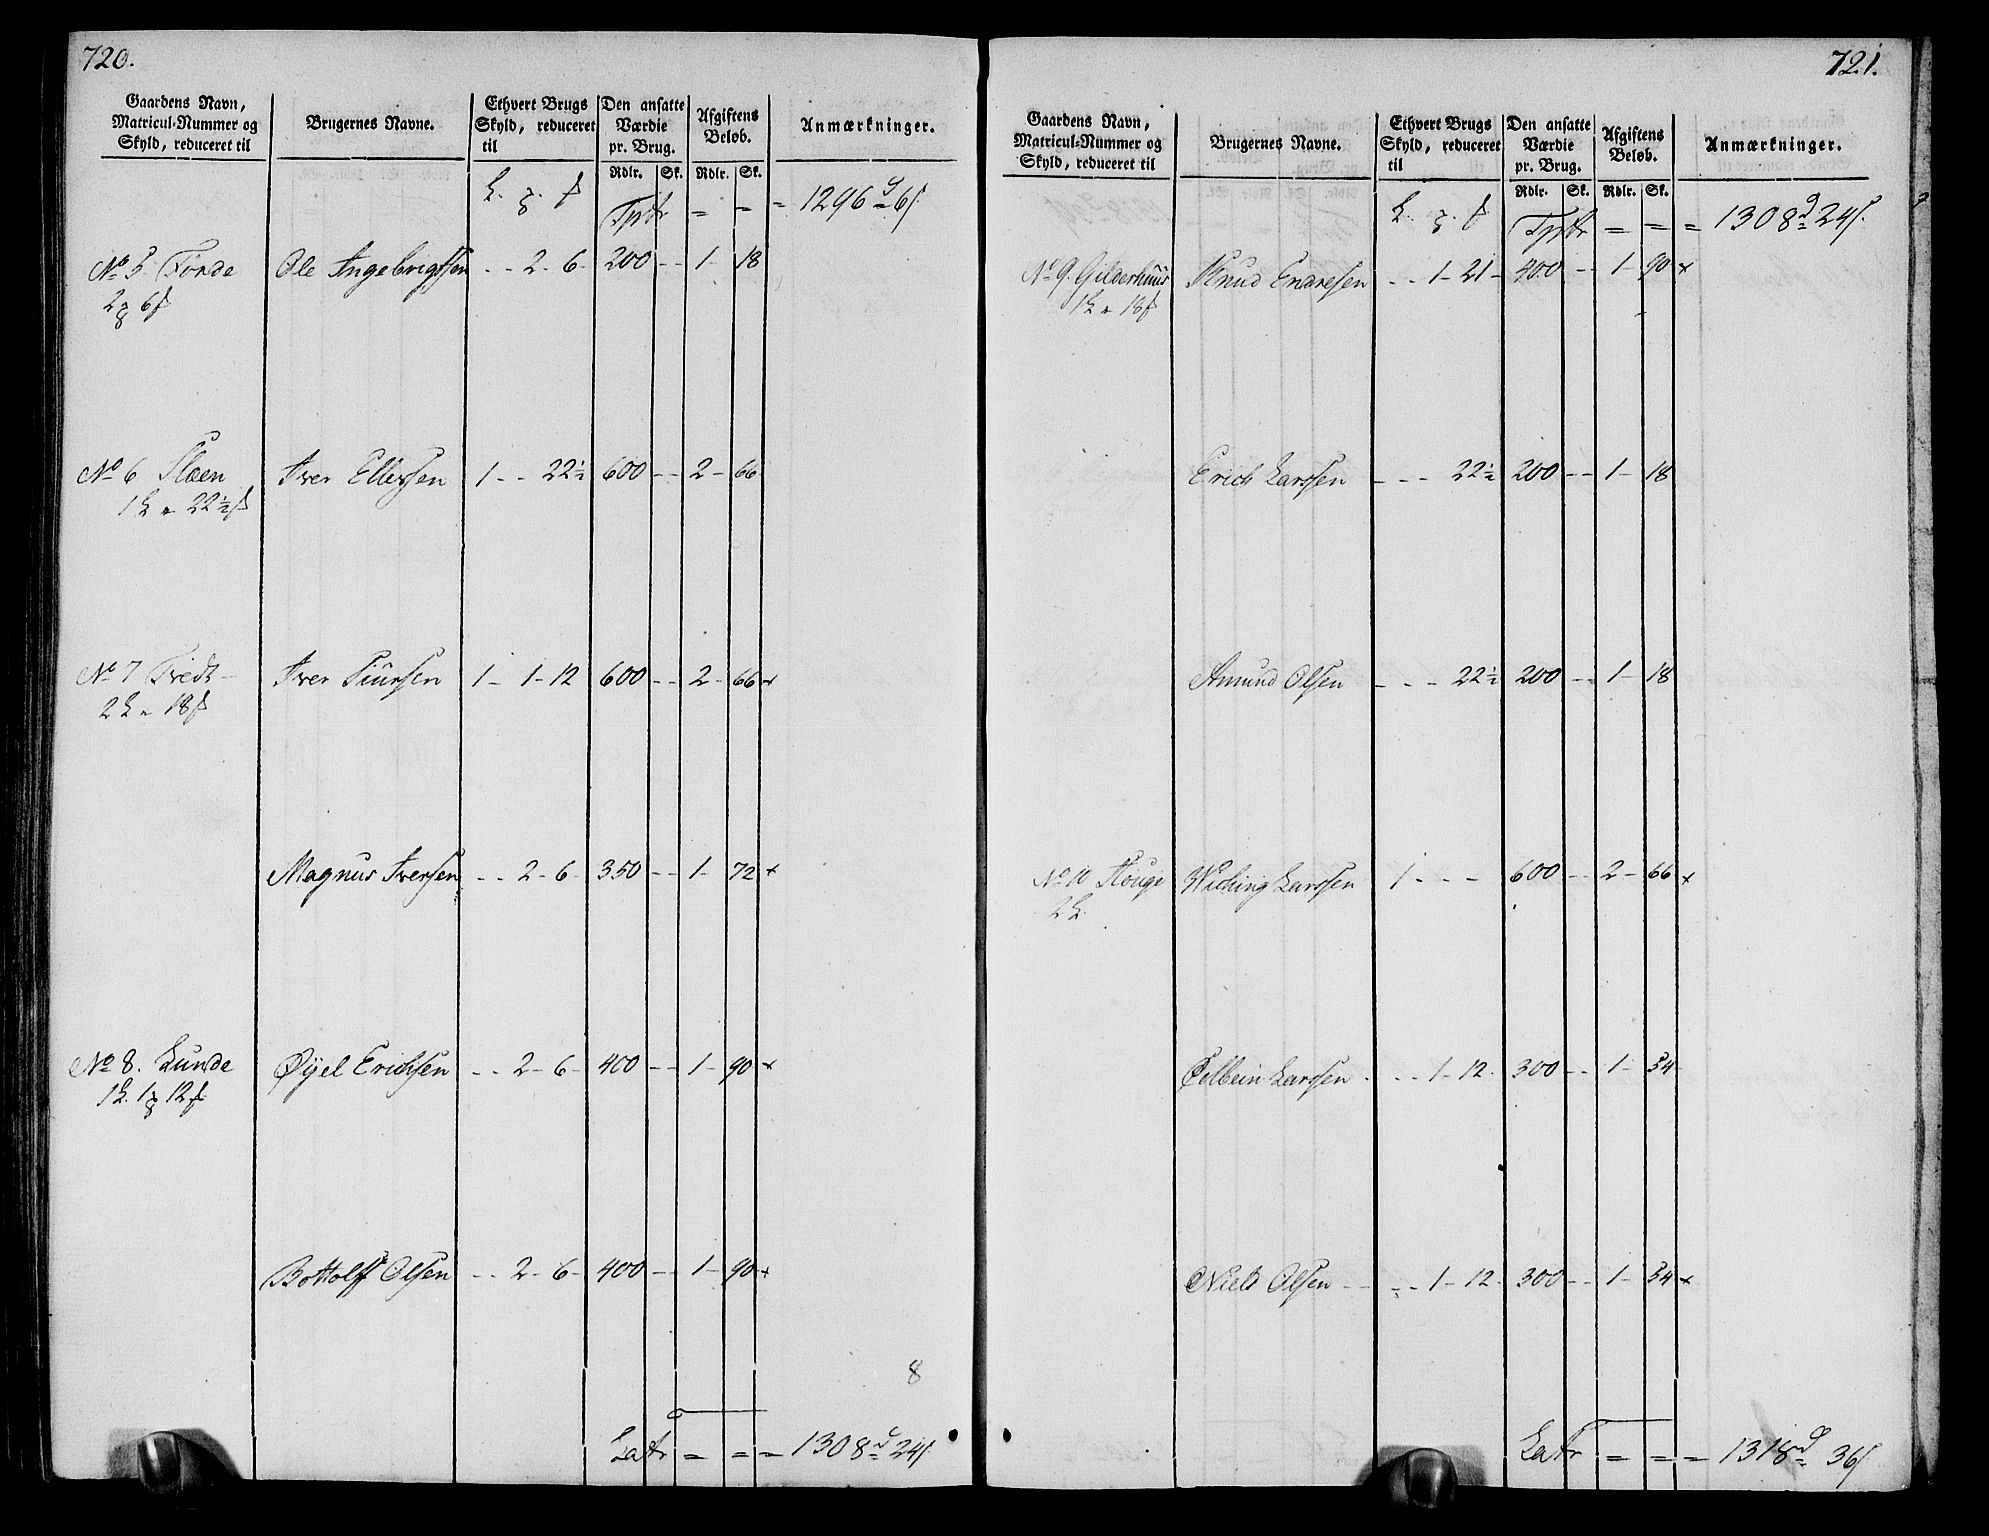 720.
Gaardens Navn, Matricul-Nummer og Skyld, reduceret til
Brugernes Navne.
Ethvert Brugs Skyld, reduceret til
Den ansatte Værdie pr. Brug.
Afgiftens Beløb.
Anmærkninger.
Rdlr. Sk. Rdlr. Sk.
Tptr = = = 1296 6
No 5 Förde Ole Ingebrigtsen - - 2 - 6 - 200 - - 1 - 18
2 6
No 6 Slæen Iver Ellefsen 1 - - 22½ 600 - - 2 - 66
1 " 22½
No 7 Tvedt Iver Siursen 1 - 1 - 12 600 - - 2 - 66 x
2 " 18
Magnus Iversen - - 2 - 6 - 350 - - 1 - 72 x
No 8. Lunde Øyel Erichsen - - 2 - 6 - 400 - - 1 - 90 x
1 1 12
Bottolff Olsen - - 2 - 6 - 400 - - 1 - 90 x
8
Latr = = = 1308 24
721.
Gaardens Navn, Matricul-Nummer og Skyld, reduceret til
Brugernes Navne.
Ethvert Brugs Skyld, reduceret til
Den ansatte Værdie pr. Brug.
Afgiftens Beløb.
Anmærkninger.
Rdlr. Sk. Rdlr. Sk.
Tptr = = = 1308 24
No 9. Gilderhuus Knud Endresen - - 1 - 21 - 400 - - 1 - 90 x
1 " 18
Erich Larssen - - - 22½ 200 - - 1 - 18
Amund Olsen - - - 22½ 200 - - 1 - 18
No 10 Houge Wiching Larssen 1 - - - 600 - - 2 - 66 x
2
Larssen - - 1 - 12 - 300 - - 1 - 54
Niels Olsen - - 1 - 12 - 300 - - 1 - 54 x
Latr = = = 1318 36